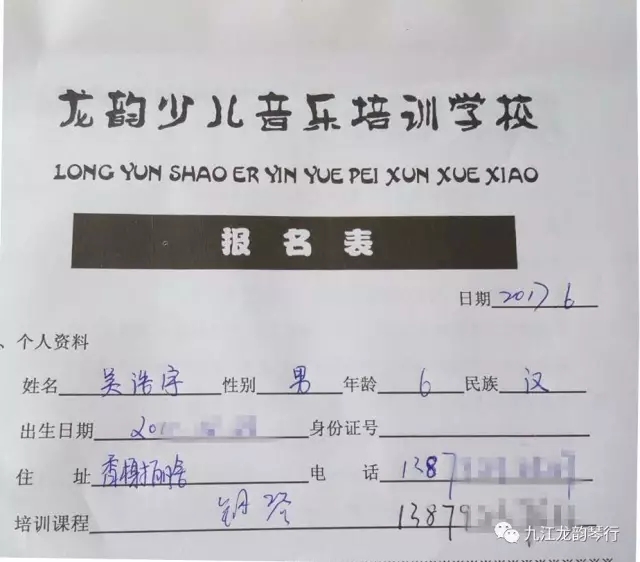 龙韵少儿音乐培训学校
LONG YUN SHAO ER YIN YUE PEI XUN XUE XIAO
报名表
日期 2017 6
、个人资料
姓名 吴浩宇 性别 男 年龄 6 民族 汉
出生日期 201 身份证号
住 址 香榭丽舍 电 话 1387
培训课程 钢琴 13879
九江龙韵琴行